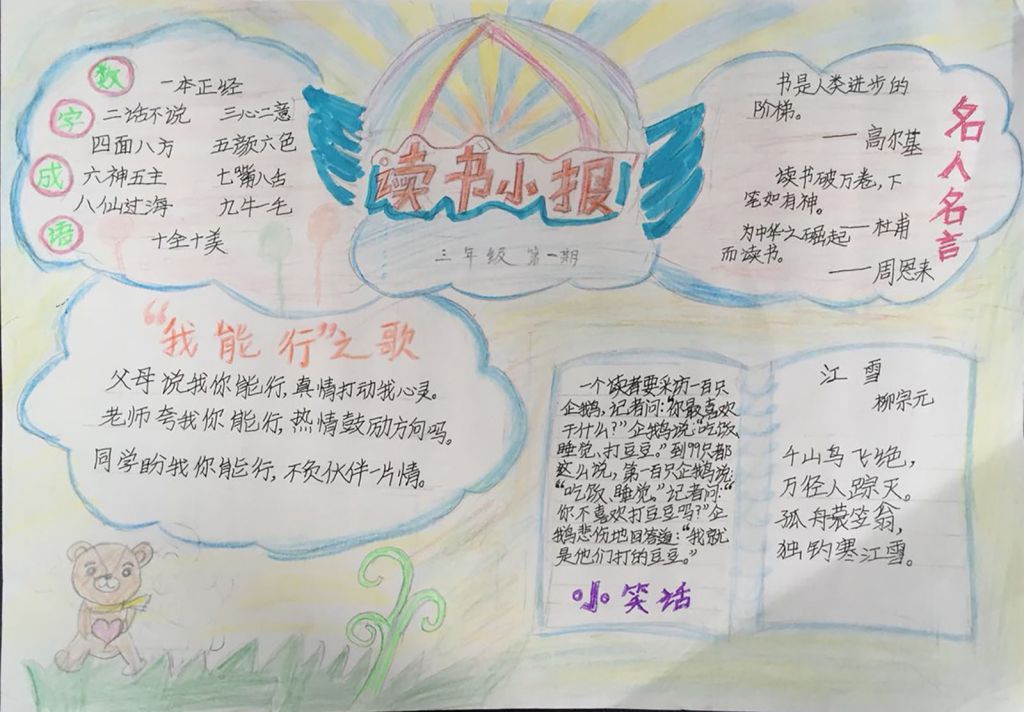 读书小报
三年级 第一期
数字成语
一本正经
二话不说 三心二意
四面八方 五颜六色
六神五主 七嘴八舌
八仙过海 九牛一毛
十全十美
名人名言
书是人类进步的
阶梯。
——高尔基
读书破万卷,下
笔如有神。
——杜甫
为中华之崛起
而读书。
——周恩来
“我能行”之歌
父母说我你能行,真情打动我心灵。
老师夸我你能行,热情鼓励方向吗。
同学盼我你能行,不负伙伴一片情。
一个读者要采访一百只
企鹅,记者问:“你最喜欢
干什么?”企鹅说:“吃饭、
睡觉、打豆豆。”到99只都
这么说,第一百只企鹅说:
“吃饭、睡觉。”记者问:“
你不喜欢打豆豆吗?”企
鹅悲伤地回答道:“我就
是他们打的豆豆。”
小笑话
江雪
柳宗元
千山鸟飞绝,
万径人踪灭。
孤舟蓑笠翁,
独钓寒江雪。